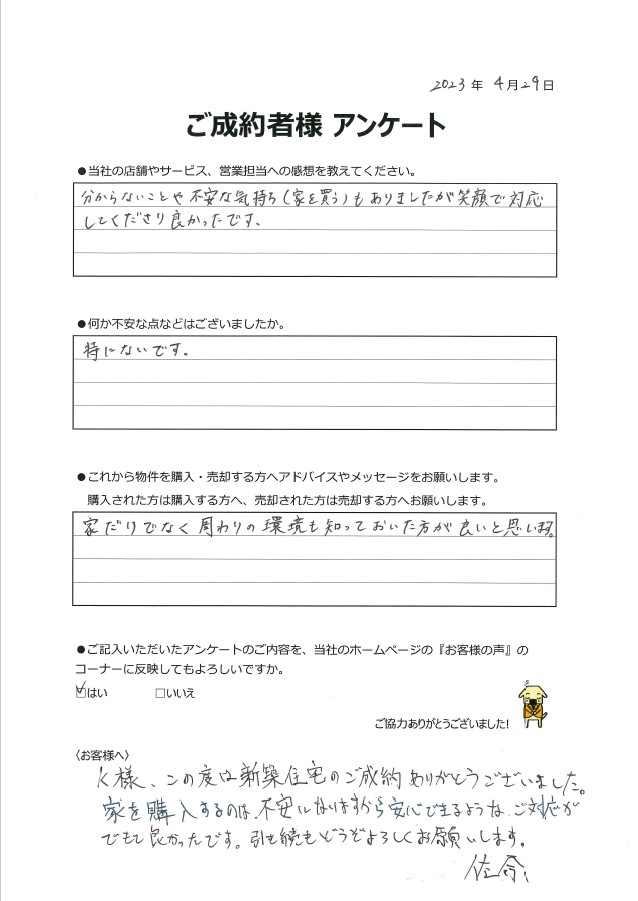 2023年 4月29日
ご成約者様 アンケート
●当社の店舗やサービス、営業担当への感想を教えてください。
分からないことや不安な気持ち(家を買う)もありましたが笑顔で対応
してくださり良かったです。
●何か不安な点などはございましたか。
特にないです。
●これから物件を購入・売却する方へアドバイスやメッセージをお願いします。
購入された方は購入する方へ、売却された方は売却する方へお願いします。
家だけでなく周わりの環境も知っておいた方が良いと思います。
●ご記入いただいたアンケートのご内容を、当社のホームページの『お客様の声』の
コーナーに反映してもよろしいですか。
☑はい □いいえ
ご協力ありがとうございました!
〈お客様へ〉
K様、この度は新築住宅のご成約ありがとうございました。
家を購入するのは、不安になりますから安心できるような、ご対応が
できて良かったです。引き続きどうぞよろしくお願いします。